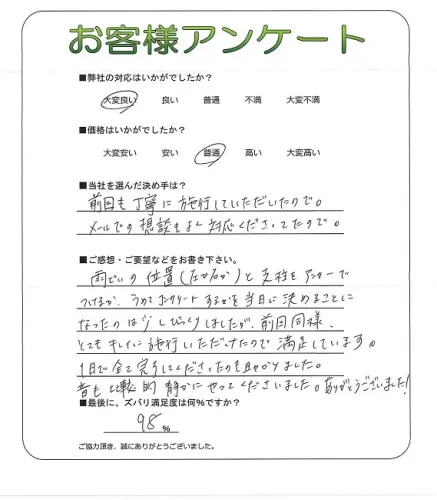 お客様アンケート
■弊社の対応はいかがでしたか？
大変良い 良い 普通 不満 大変不満
■価格はいかがでしたか？
大変安い 安い 普通 高い 大変高い
■当社を選んだ決め手は？
前回も丁寧に施行していただいたので。
メールでの相談もよく対応くださってたので。
■ご感想・ご要望などをお書き下さい。
雨どいの位置(左か右か)と支柱をアンカーで
つけるか、うめてコンクリートするかを当日に決めることに
なったのは少しびっくりしましたが、前回同様、
とてもキレイに施行いただけたので満足しています。
1日で全て完了してくださったのも助かりました。
音も比較的静かにやってくださいました。ありがとうございました!
■最後に、ズバリ満足度は何%ですか？
98%
ご協力頂き、誠にありがとうございました。